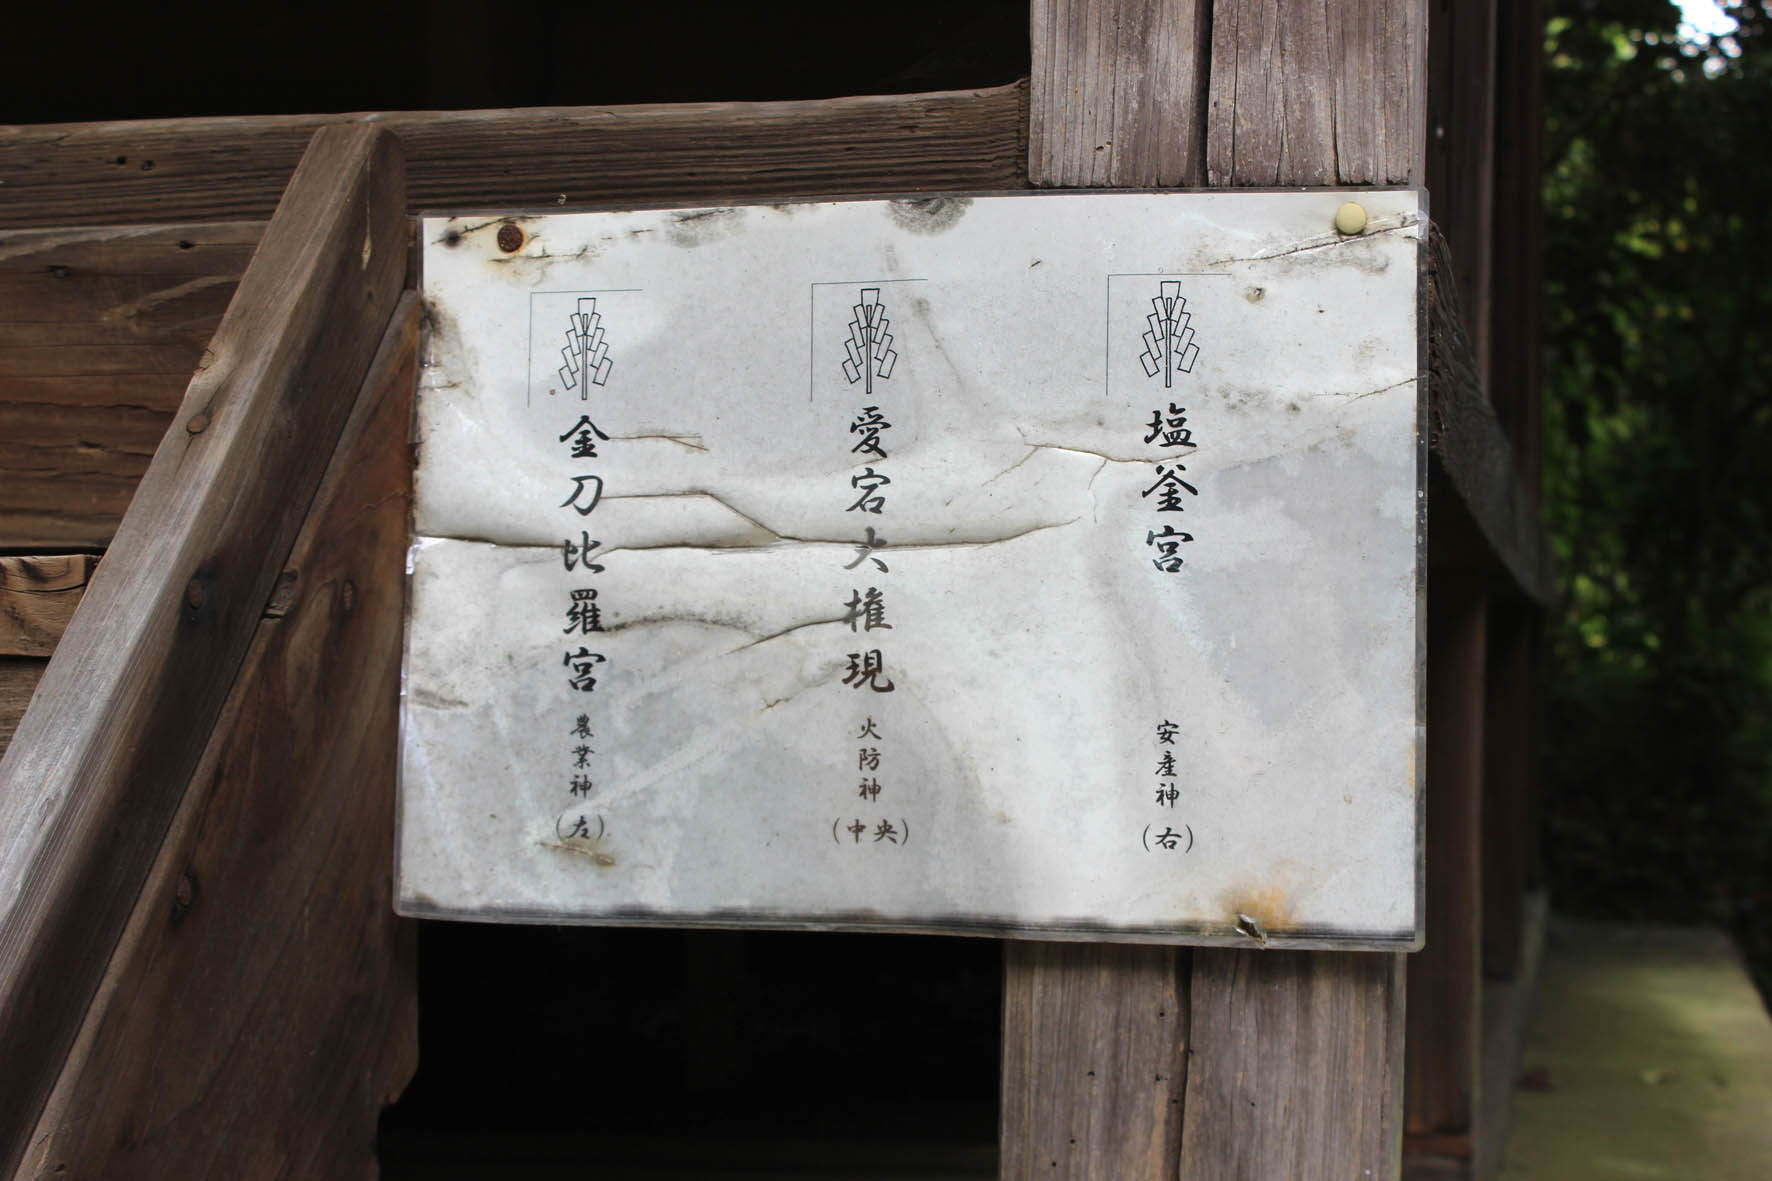 塩釜宮 安産神 (右)
愛宕大権現 火防神 (中央)
金刀比羅宮 農業神 (左)